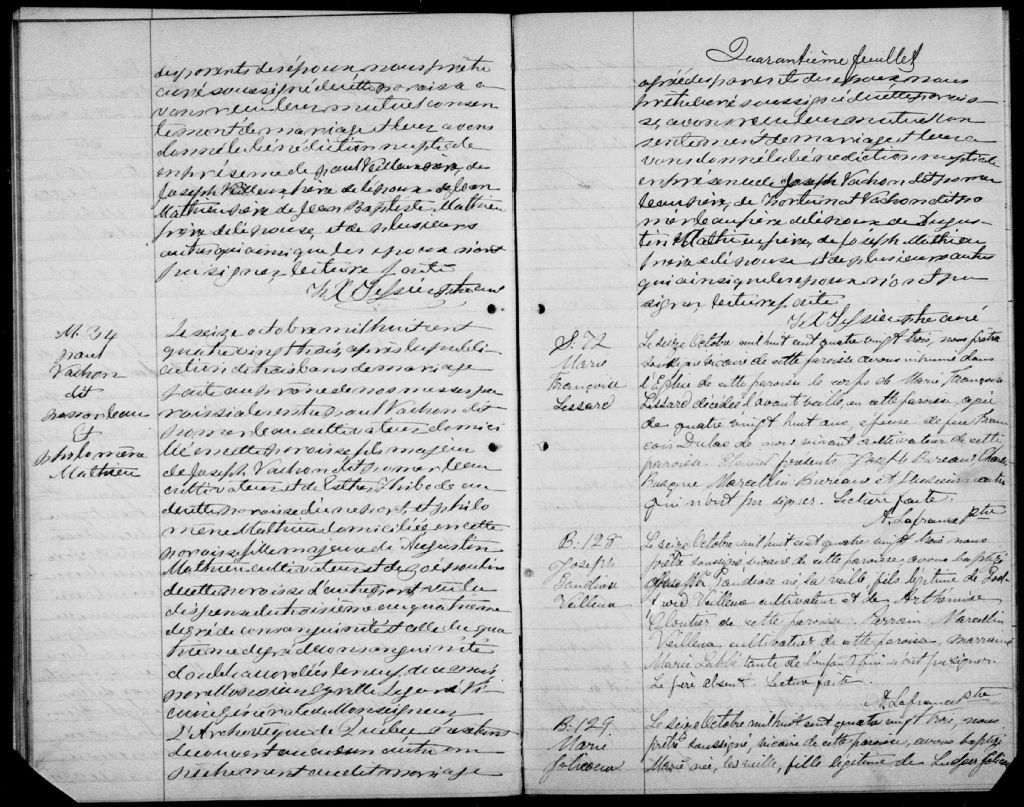 des parents des époux, nous prêtre
curé soussigné de cette paroisse a
vons reçu leur mutuel consen
tement de mariage et leur avons
donné la bénédiction nuptiale
en présence de Paul Veilleux, de
Joseph Veilleux frère de l'époux, de Jean
Mathieu père, de Jean Baptiste Mathieu
frère de l'épouse, et de plusieurs
autres qui ainsi que les époux n'ont
pu signer, lecture faite
Ptre curé
M. 34
Paul
Vachon
dit
Pomerleau
et
Philomène
Mathieu
Le seize octobre mil huit cent
quatre vingt trois, après la publi
cation de trois bans de mariage
faite au prône de nos messes pa
roissiales entre Paul Vachon dit
Pomerleau cultivateur domici
lié en cette paroisse fils majeur
de Joseph Vachon dit Pomerleau
cultivateur et de Esther Thibodeau
de cette paroisse d'une part, et Philo
mène Mathieu domiciliée en cette
paroisse fille majeure de Augustin
Mathieu cultivateur et de Zoé Poulin
de cette paroisse d'autre part, vu la
dispense du troisième au quatrième
degré de consanguinité et celle du qua
trième degré de consanguinité
double accordées le neuf du courant
par Messire Cyrille Legaré Vi
caire général de Monseigneur
L'Archevêque de Québec, ne s'étant
découvert aucun autre em
pêchement au dit mariage
Quarantième feuillet
agréé des parents des époux, nous
prêtre curé soussigné de cette parois
se, avons reçu leur mutuel con
sentement de mariage et leur a
vons donné la bénédiction nuptiale
en présence de Joseph Vachon dit Pomer
leau père, de Fortunat Vachon dit Po
merleau frère de l'époux, de Augus
tin Mathieu père, de Joseph Mathieu
frère de l'épouse et de plusieurs autres
qui ainsi que les époux n'ont pu
signer, lecture faite
Ptre curé
S. 72
Marie
Françoise
Lessard
Le seize Octobre mil huit cent quatre vingt trois, nous prêtre
soussigné vicaire de cette paroisse avons inhumé dans
l'Eglise de cette paroisse le corps de Marie Françoise
Lessard décédée l'avant veille, en cette paroisse, agée
de quatre vingt huit ans, épouse de feu Fran
çois Dulac de son vivant cultivateur de cette
paroisse. Etaient présents Joseph Bureau, Charles
Busque Marcellin Bureau et plusieurs autres
qui n'ont pu signer. Lecture faite.
A. Lafrance Ptre
B. 128
Joseph
Pandiose
Veilleux
Le seize Octobre mil huit cent quatre vingt trois nous
prêtre soussigné vicaire de cette paroisse avons baptisé
Joseph Pandiose né la veille, fils légitime de
Veilleux cultivateur et de Arthémise
Cloutier de cette paroisse. Parrain Marcellin
Veilleux cultivateur de cette paroisse, marraine
Marie Labbé tante de l'enfant qui n'ont pu signer
Le père absent. Lecture faite.
A. Lafrance Ptre
B. 129
Marie
Jolicoeur
Le seize Octobre mil huit cent quatre vingt trois, nous
prêtre soussigné, vicaire de cette paroisse, avons baptisé
Marie née, la veille, fille légitime de Ludger